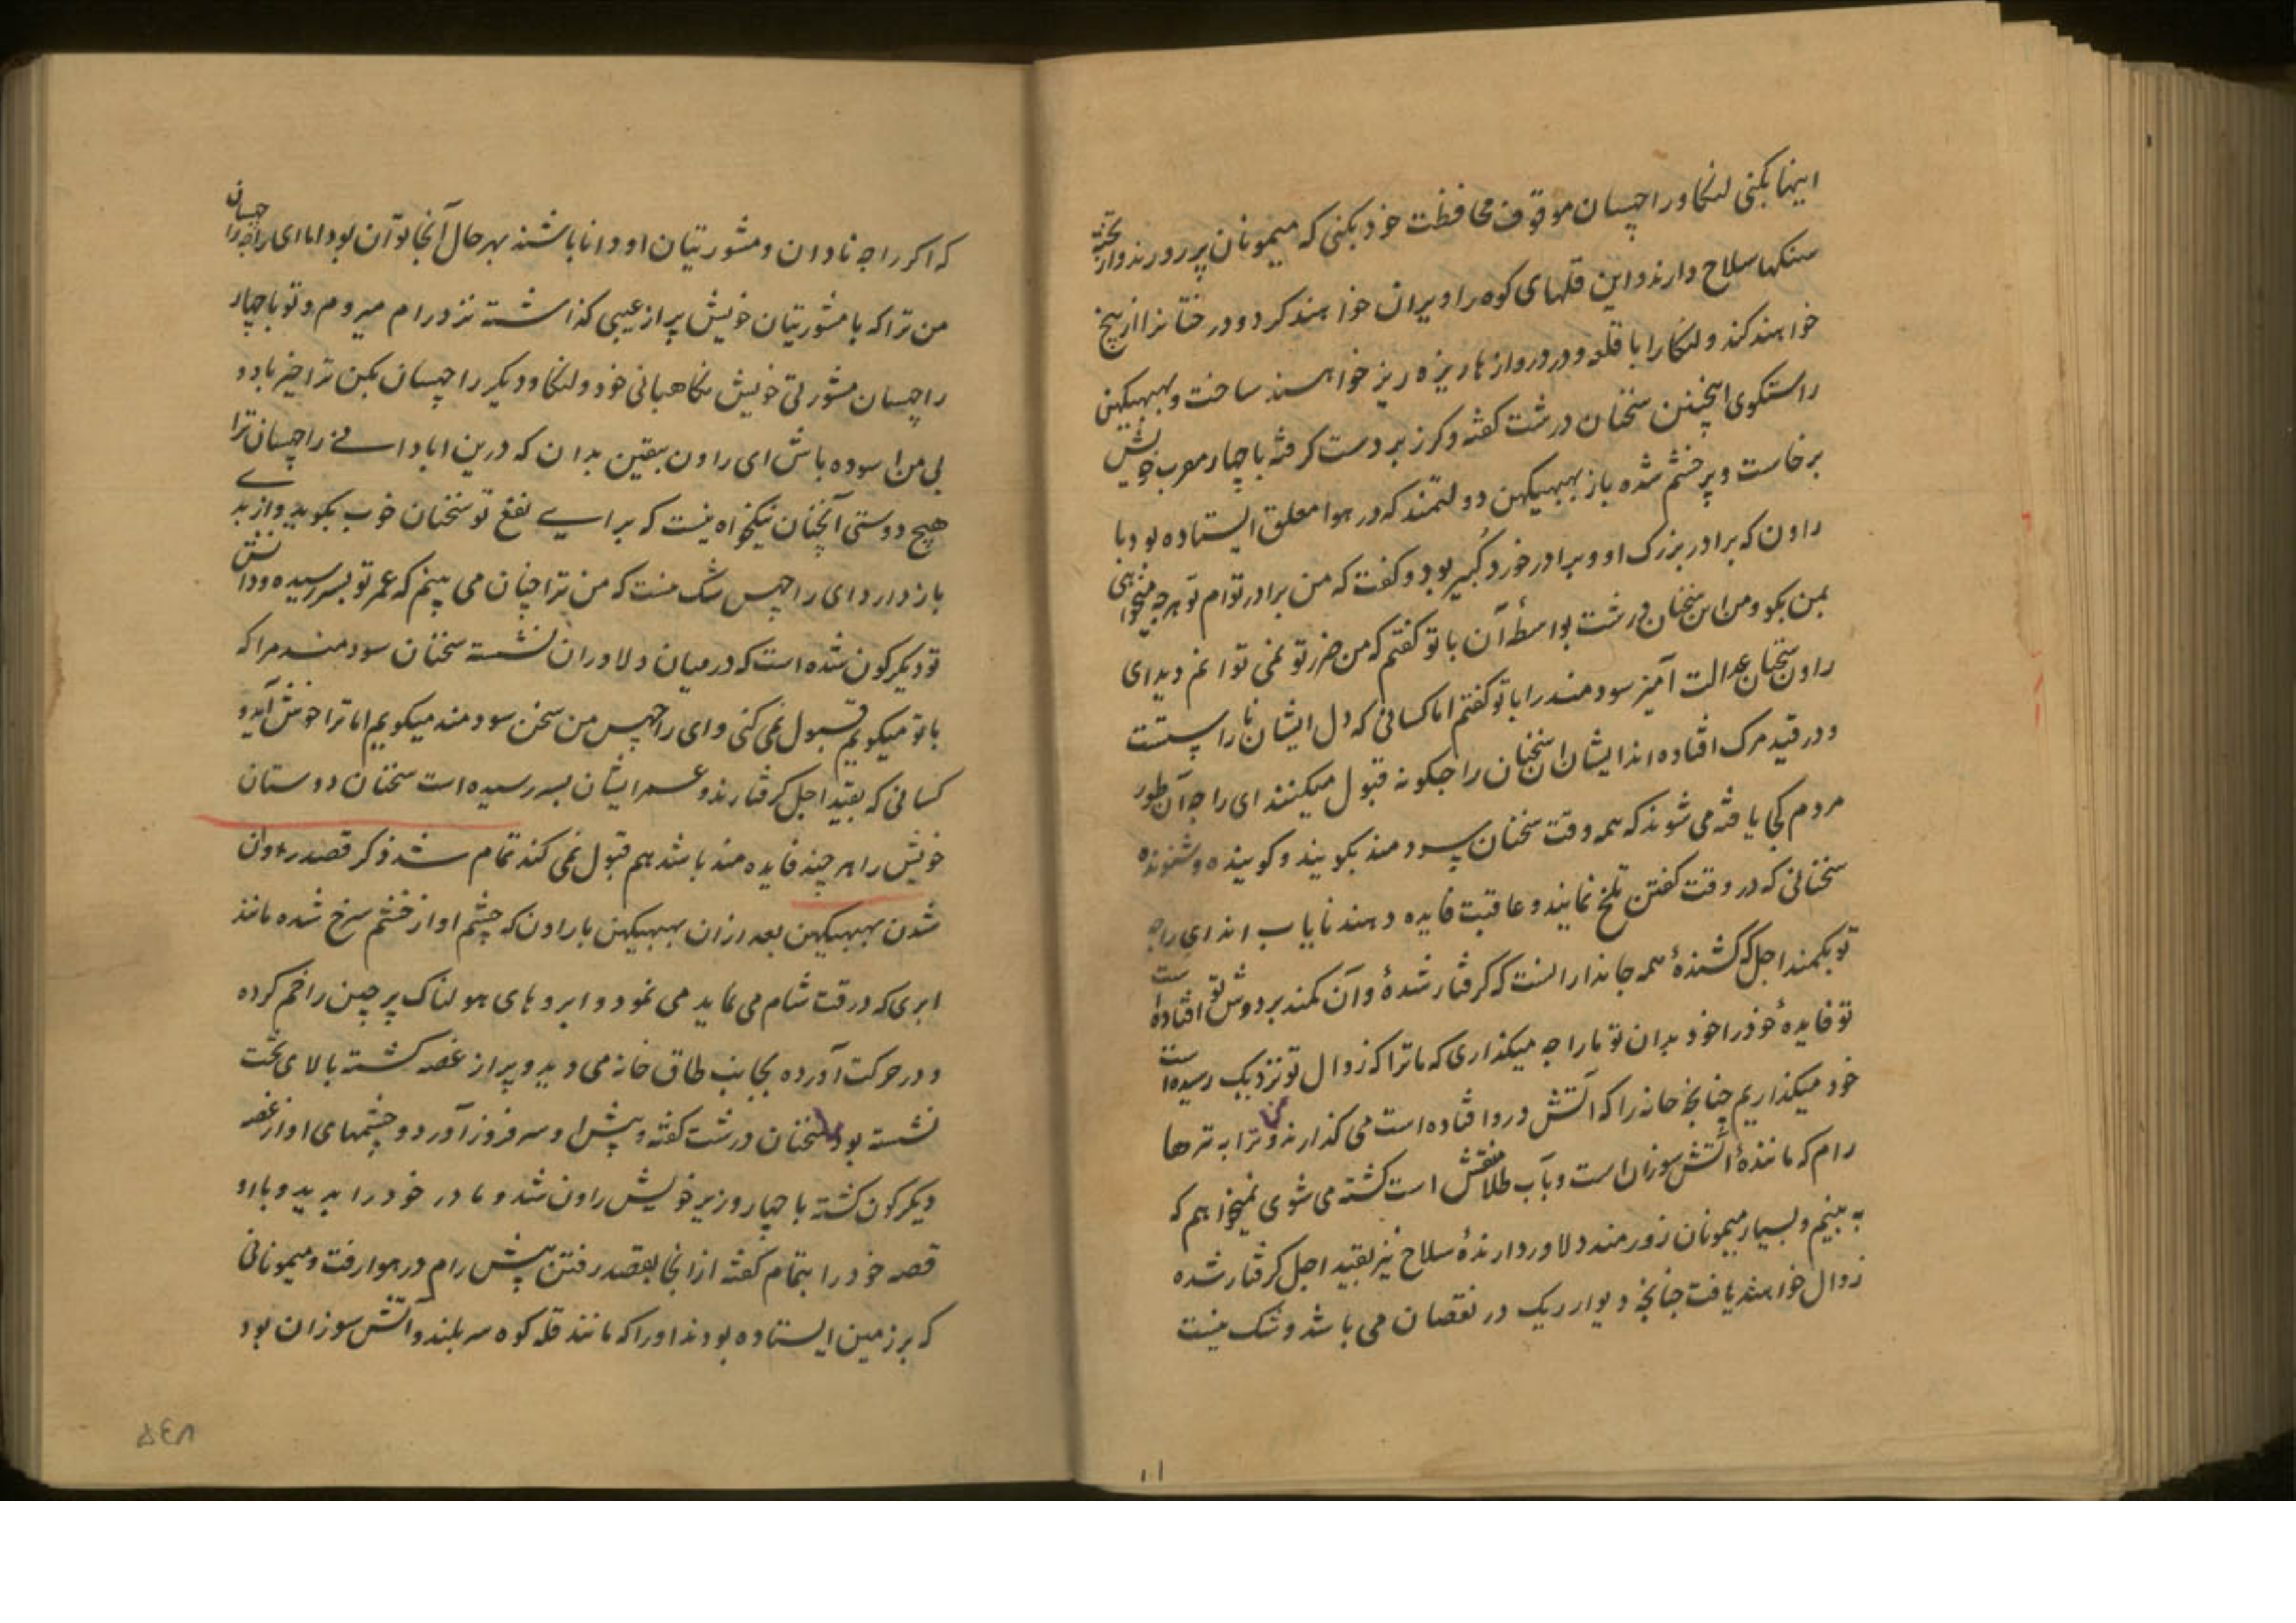 اینها بکنی لنکا و راچهسان موقوف محافظت خود بکنی که میمونان پر زور رند و از تخته
سنکها سلاح دارند و این قلهای کوه را ویران خواهند کرد و درختانرا از بیخ
خواهند کند و لنکا را با قلعه و در دروازها ریزه ریز خواهند ساخت و بهبهیکهن
راستکوی اینچنین سخنان درشت کفته و کرز بر دست کرفته با چهار معرب خویش
برخاست و پر خشم شده باز بهبهیکهن دولتمند که در هوا معلق ایستاده بود با
راون که برادر بزرک او و برادر خورد کبیر بود و کفت که من برادر توام تو هرچه میخواهی
بمن بکو و من این سخنان درشت بواسطهٔ آن با تو کفتم که من ضرر تو نمی توانم دید ای
راون سخنان عدالت آمیز سودمند را با تو کفتم اما کسانی که دل ایشان نا راستست
و در قید مرک افتاده اند ایشان این سخنان را چکونه قبول میکنند ای راجه آن طور
مردم کجا یافته می شوند که همه وقت سخنان سودمند بکویند و کوینده و شنونده
سخنانی که در وقت کفتن تلخ نمایند و عاقبت فایده دهند نایاب اند ای راجه
تو بکمند اجل که کشندهٔ همه جاندارانست که کرفتار شدهٔ و آن کمند بر دوش تو افتاده است
تو فایدهٔ خود را خود بدان تو ما را چه میکذاری که ما ترا که زوال تو نزدیک رسیده است
خود میکذاریم چنانچه خانه را که آتش درو افتاده است می کذارند و ترا به تیرها
رام که مانندهٔ آتش سوزان است و بآب طلا نقش است کشته می شوی نمیخواهم که
به بینم و بسیار میمونان زورمند دلاور دارندهٔ سلاح نیز بقید اجل کرفتار شده
زوال خواهند یافت چنانچه دیوار ریک در نقصان می باشد و شک نیست
که اکر راجه نادان و مشورتیان او دانا باشند بهر حال آنجا توان بود اما ای راجه راچهسان
من ترا که با مشورتیان خویش پر از عیبی کذاشته نزد رام میروم و تو با چهار
راچهسان مشورتی خویش نکاهبانی خود و لنکا و دیکر راچهسان بکن ترا خیر باد و
بی من آسوده باش ای راون بیقین بدان که درین ابادانی راچهسان ترا
هیچ دوستی آنچنان نیکخواه نیست که برای نفع تو سخنان خوب بکوید و از بدی
باز دارد ای راچهس شک نیست که من ترا چنان می بینم که عمر تو بسر رسیده و دانش
تو دیکرکون شده است که در میان دلاوران نشسته سخنان سودمند مرا که
با تو میکویم قبول نمی کنی و ای راچهس من سخن سودمند میکویم اما ترا خوش آید و
کسانی که بقید اجل کرفتارند و عمر ایشان بسر رسیده است سخنان دوستان
خویش را هر چند فایده مند باشد هم قبول نمی کند تمام شد ذکر قصد راون
شدن بهبهیکهن بعد ازان بهبهیکهن با راون که چشم او از خشم سرخ شده مانند
ابری که در وقت شام می نماید می نمود و ابروهای هولناک پر چین را خم کرده
و در حرکت آورده بجانب طاق خانه می دید و پر از غصه کشته بالای تخت
نشسته بود سخنان درشت کفته و پیش او سر فروز آورد و چشمهای او از غصه
دیکرکون کشته با چهار وزیر خویش راون شد و مادر خود را بدید و باو
قصه خود را بتمام کفته از آنجا بقصد رفتن پیش رام در هوا رفت و میمونانی
که بر زمین ایستاده بودند او را که مانند قله کوه سر بلند و آتش سوزان بود
۵۴۸
۱۱